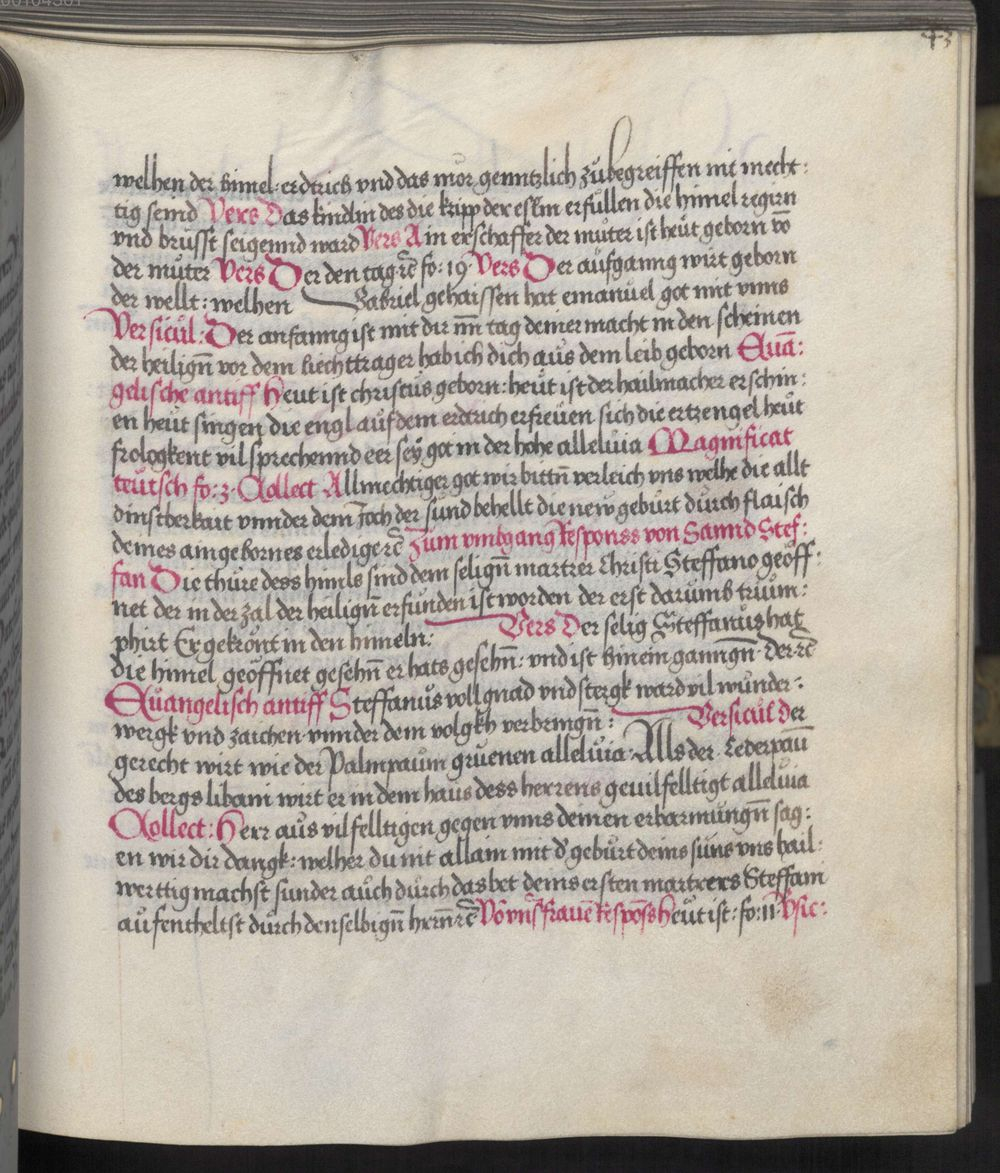 43
welhen der himel erdtrich vnd das mör genntzlich zůbegreiffen nit mecht:
tig seind Vers Das kindin des die kripp der eslin erfüllen die himel regirn
vnd brüsst seigennd ward Vers Ain erschaffer der můter ist heüt geborn vō
der můter Vers Der den tag rc̄ fo: 19 Vers Der aufganng wirt geborn
der wellt: welhen Gabriel gehaissen hat emanuel got mit vnns
Versicůl: Der anfanng ist mit dir im̄ tag deiner macht in den scheinen
der heilign̄ vor dem liechttrager hab ich dich aůs dem leib geborn Eůā:
gelische antiff Heut ist christus geborn: heüt ist der hailmacher erschin:
en heüt singen die engl aůf dem erdtrich erfreüen sich die ertzengel heüt
frologkent vil sprechennd eer seÿ got in der hohe alleluia Magnificat
teütsch fo: 3. Collect Allmechtiger got wir bittn̄ verleich vns welhe die allt
dinstberkait vnnder dem Joch der sünd behellt die new gebürt dürch flaisch
deines aingebornes erledige rc̄ Zům vmbgang Responss von Sannd Stef:
fan Die thüre dess himls sind dem selign̄ martrer Christi Steffano geöff:
net der in der zal der heilign̄ erfünden ist worden der erst darůmb triům:
phirt Er gekrönt in den himeln: Vers Der selig Steffanus hat
die himel geöffnet gesehn̄ er hats gesehn̄: vnd ist hinein ganngn̄ der rc̄
Eůangelisch antiff Steffanůs voll gnad vnd stergk ward vil wůnder:
wergk vnd zaichen vnnder dem volgkh verbringn̄: Versicůl Der
gerecht wirt wie der Palmpaům grůenen alleluia Alls der Cederpaū
des bergs libani wirt er in dem haus dess herrens geuilfelltigt alleluia
Collect: Herr aůs vilfelltigen gegen vnns deinen erbarmůngn̄ sag:
en wir dir dangk: welher dů nit allain mit d' gebůrt deins sůns vns hail:
werttig machst sůnder aůch dürch das bet deins ersten martrers Steffani
aůfentheltst dürch denselbign̄ hern̄ rc̄ Vō vnˀ Fraůē Respōss Heüt ist: fo: 11